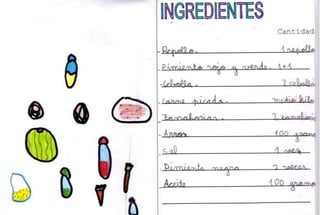 INGREDIENTES
Cantidad
Repollo. 1 repollo
Pimiento rojo y verde. 1+1
Cebolla. 2 cebolla
Carne picada. medio kilo
Zanahorias. 2 zanahoria
Arroz 100 gramo
Sal 1 vez
Pimienta negra 2 veces
Aceite 100 gramo